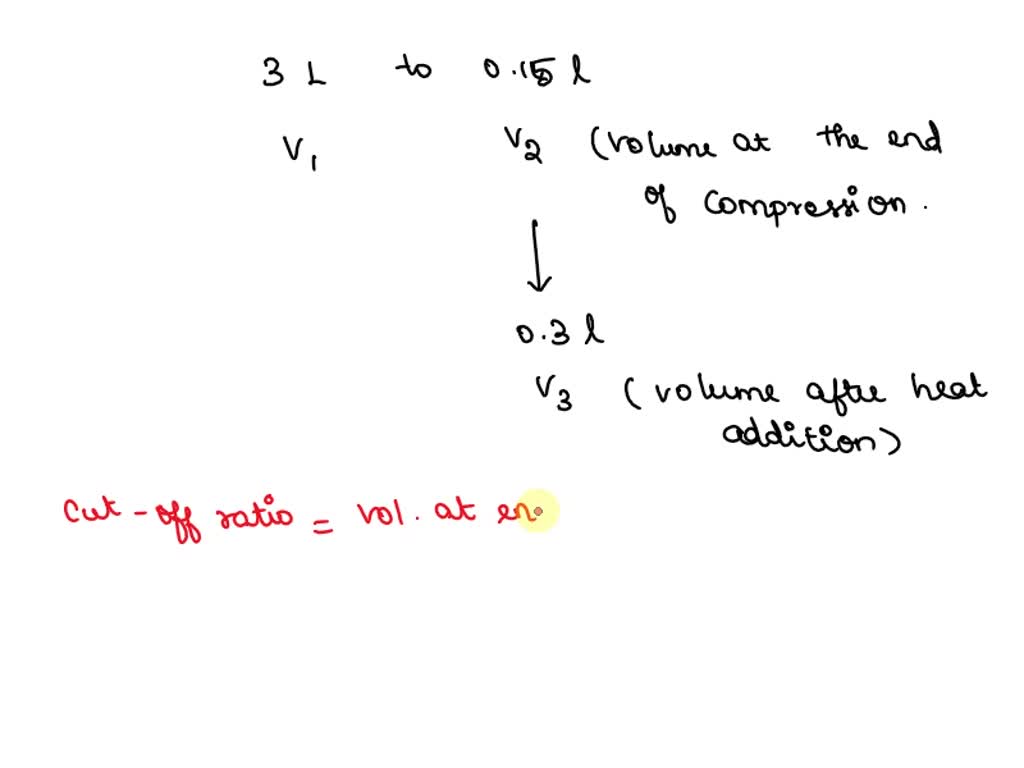 3 L to 0.15 l
V1 V2 (volume at the end
of compression.
0.3 l
V3 (volume after heat
addition)
Cut-off ratio = vol. at en